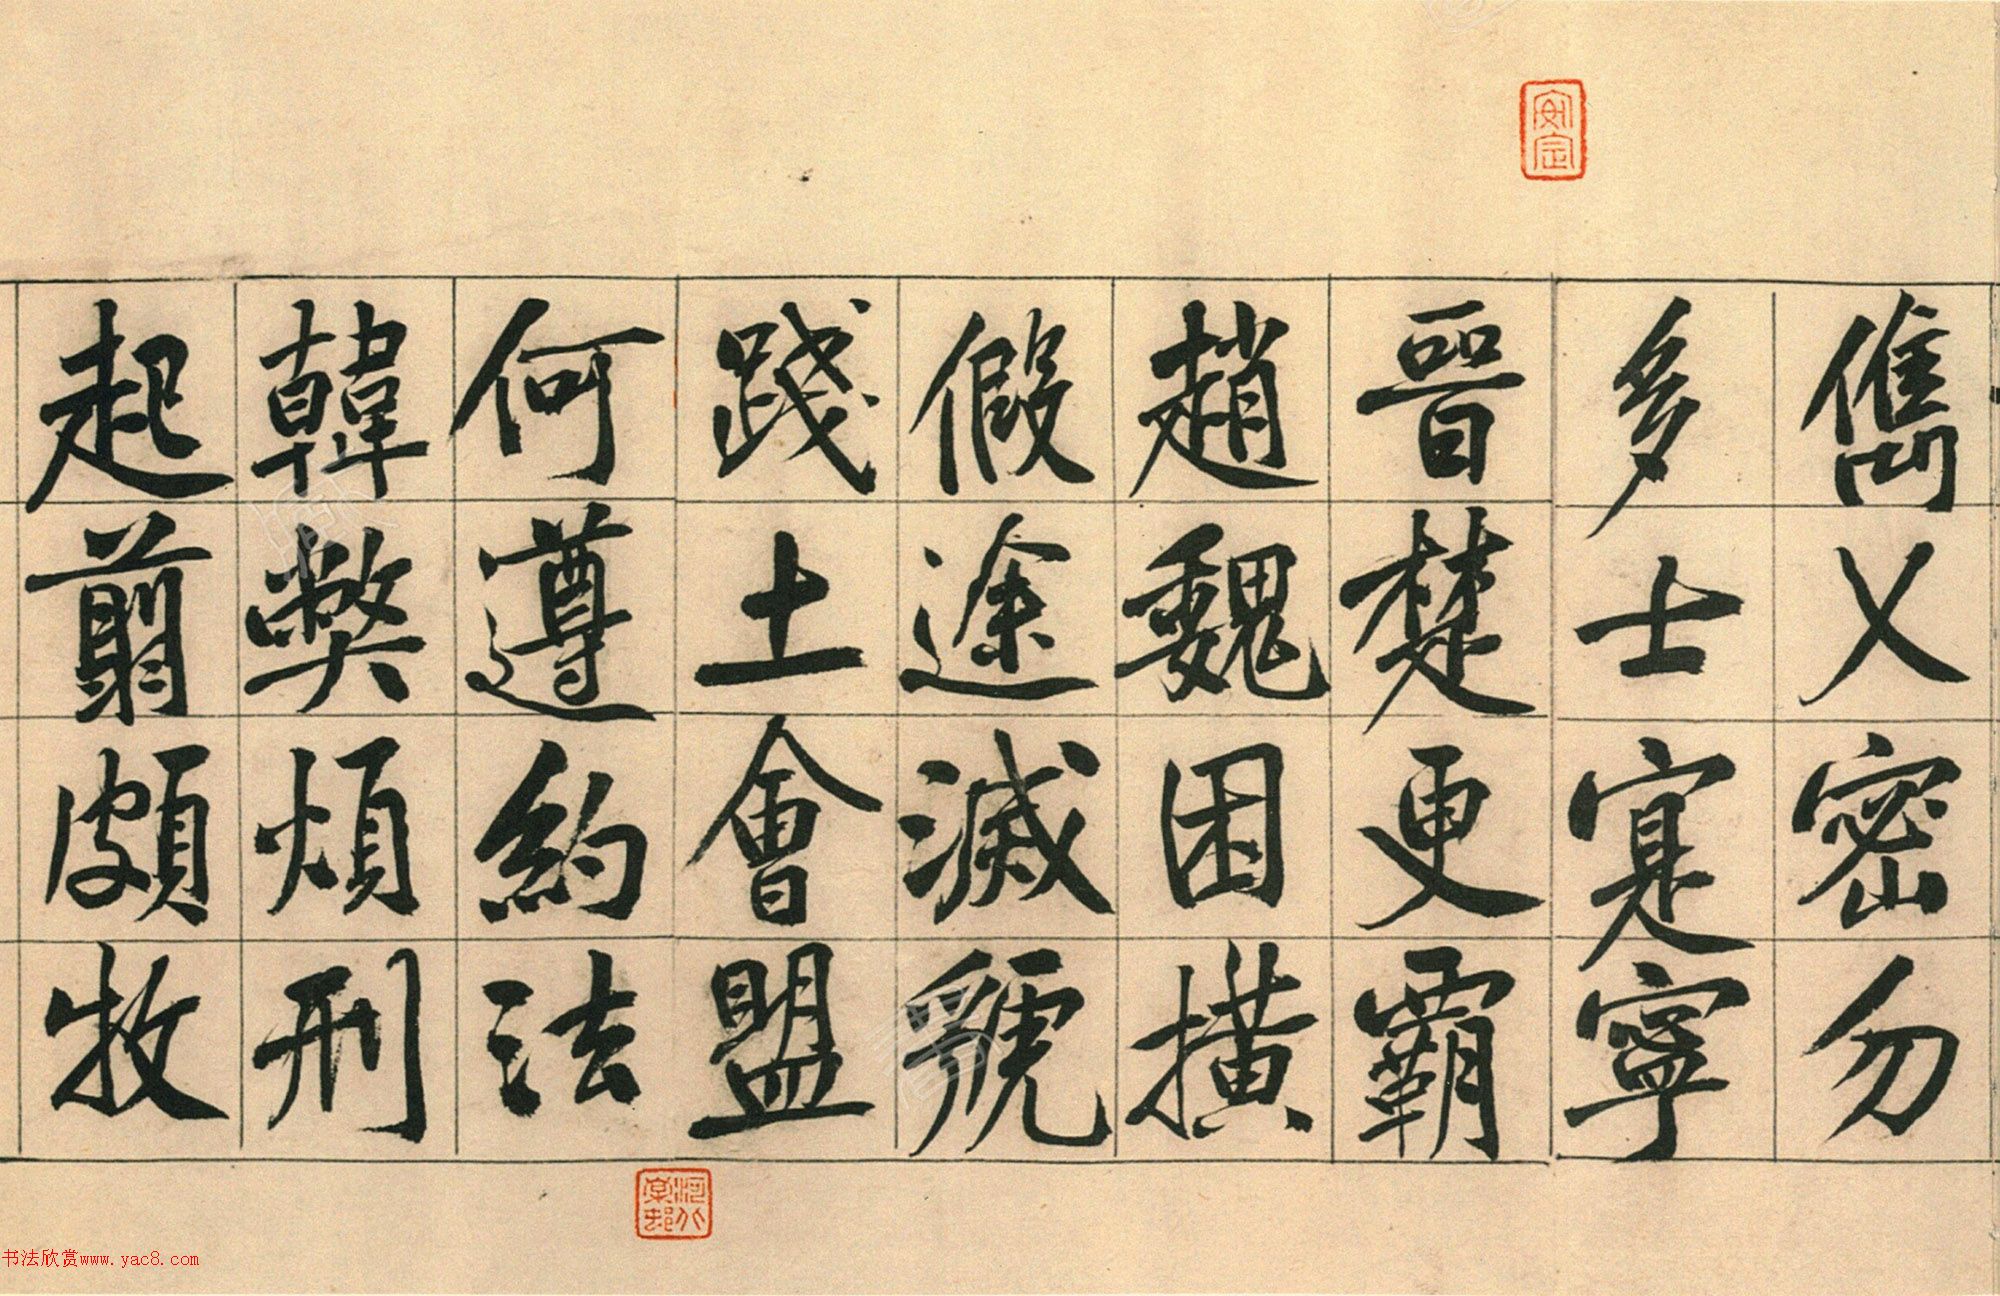 儁乂密勿
多士寔寧
晉楚更霸
趙魏困橫
假途滅虢
踐土會盟
何遵約法
韓弊煩刑
起翦頗牧
安定
书法欣赏www.yac8.com